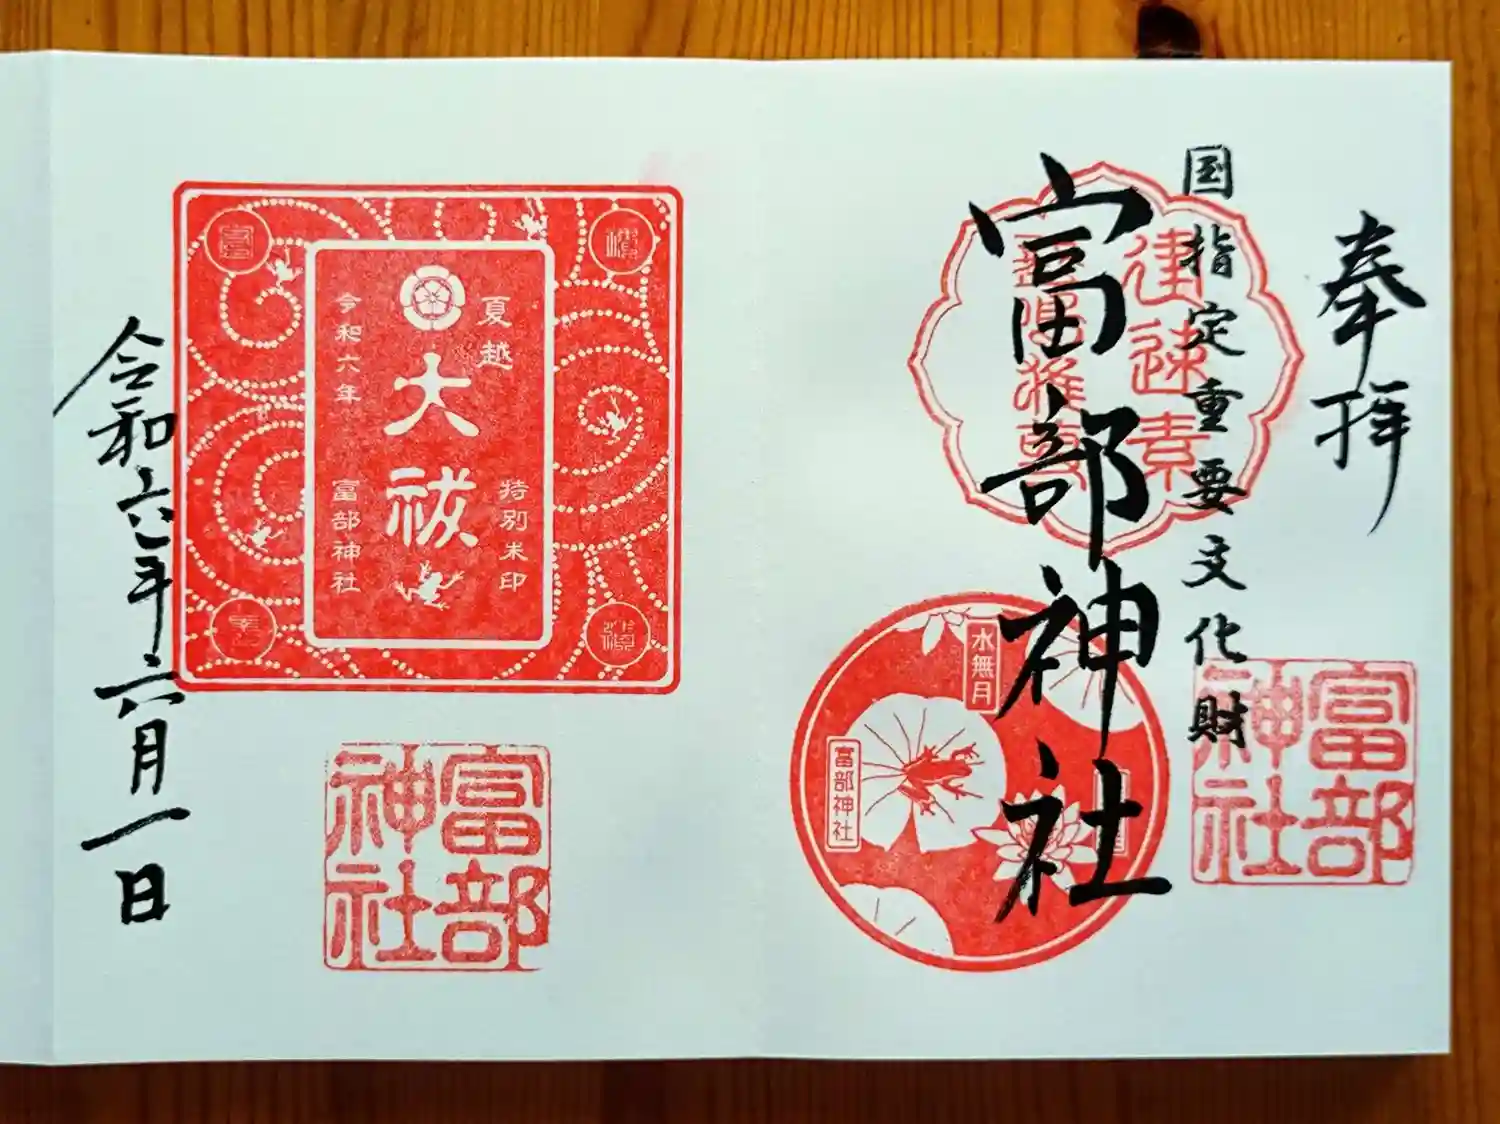 奉拝
国指定重要文化財
富部神社
建速素
水無月
富部神社
富部
神社
夏越
大祓
特別朱印
令和六年
富部神社
富部
神社
令和六年六月一日